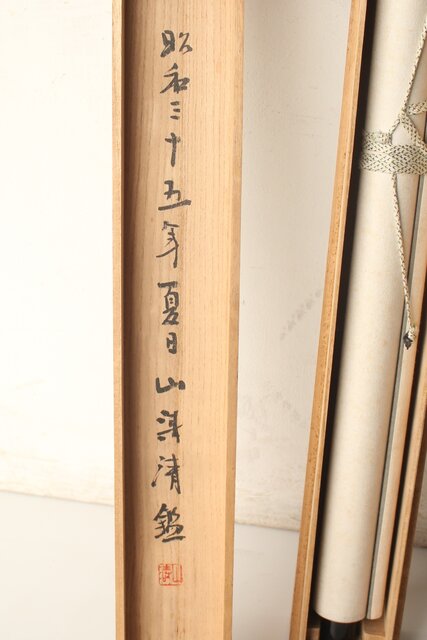 昭和三十五年夏日山梁清鑑